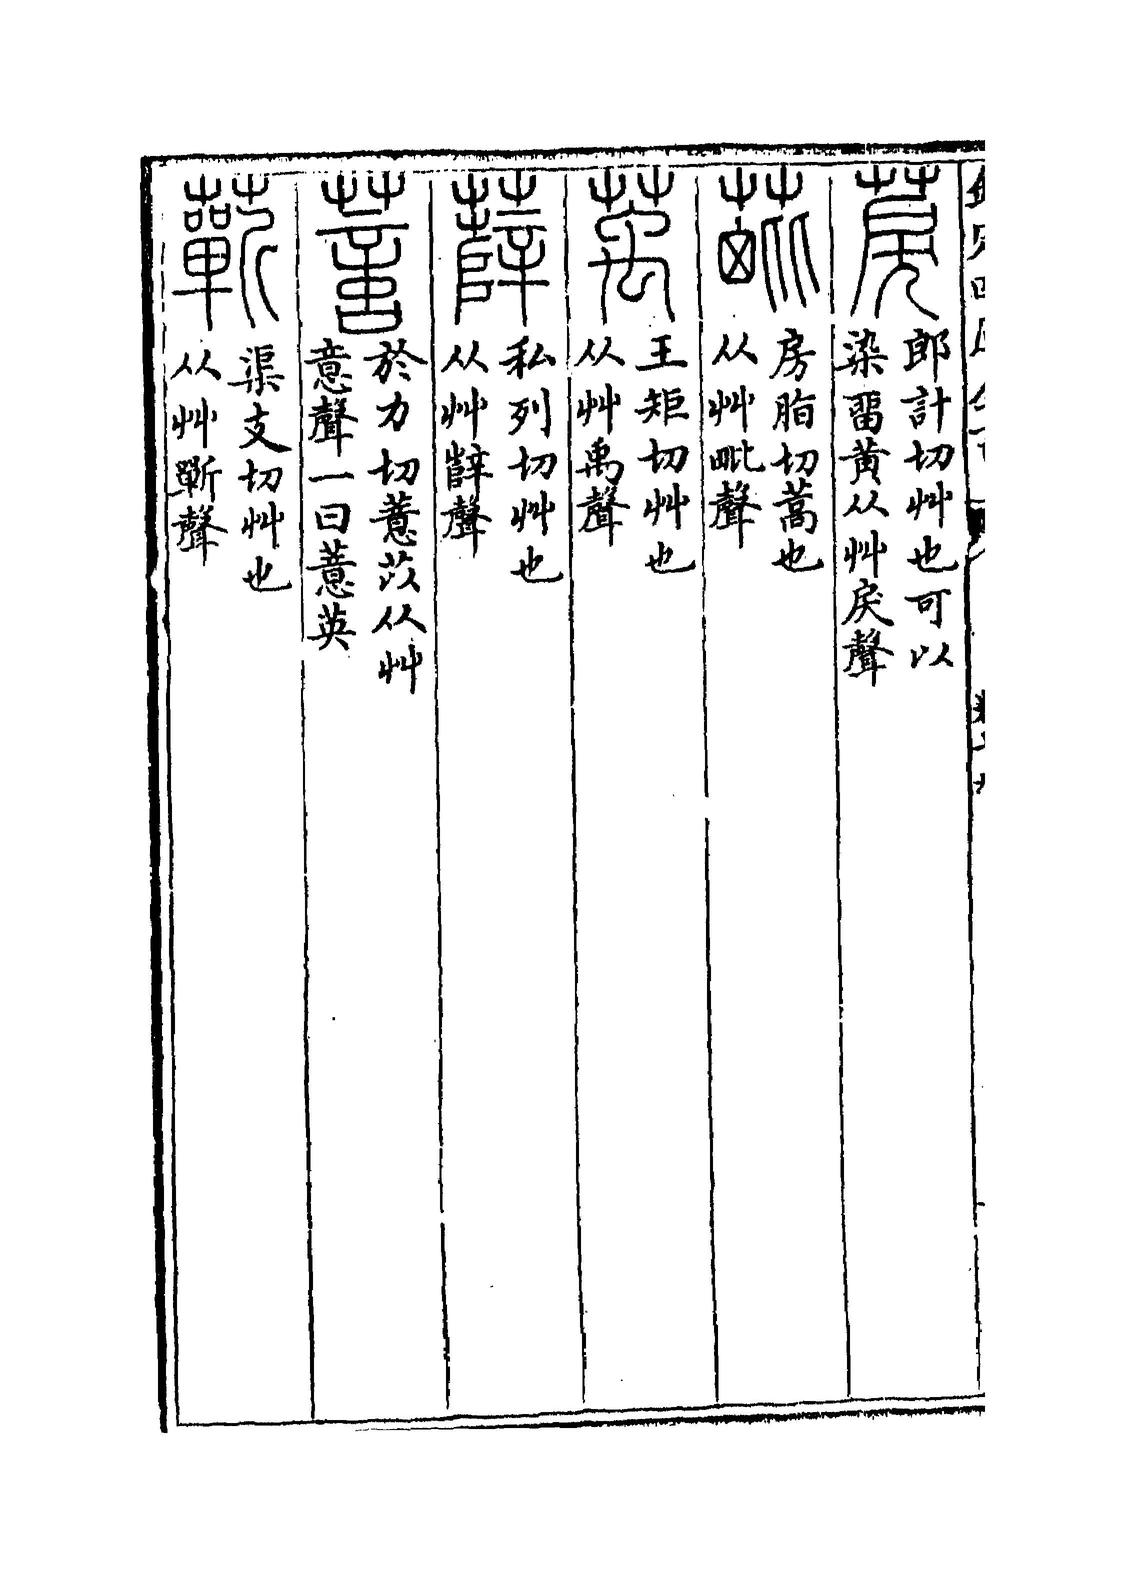 䓞
郎計切艸也可以
染留黄从艸戾聲
𦯇
房脂切蒿也
从艸毗聲
萭
王矩切艸也
从艸禹聲
薛
私列切艸也
从艸辥聲
薏
於力切薏苡从艸
意聲一曰薏英
蘄
渠支切艸也
从艸𣂷聲